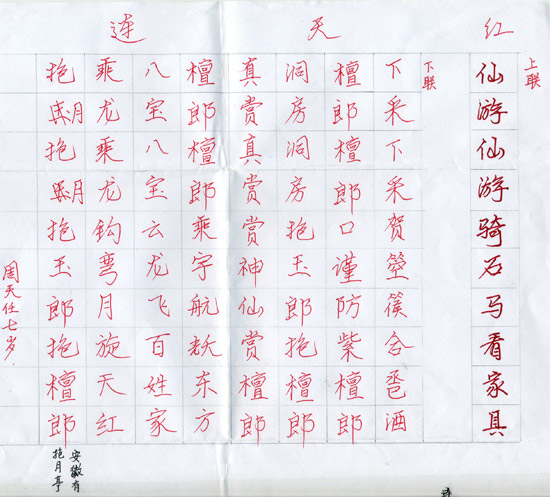 红天连
上联
仙游仙游骑石马看家具
下联
下采下采贺箜篌合卺酒
檀郎檀郎口谨防紫檀郎
洞房洞房抱玉郎抱檀郎
真赏真赏赏神仙赏檀郎
檀郎檀郎乘宇航东方
八宝八宝云龙飞百姓家
乘龙乘龙钩弯月旋天红
抱抱抱玉郎抱檀郎
周天任七岁.
安徽有
抱月亭